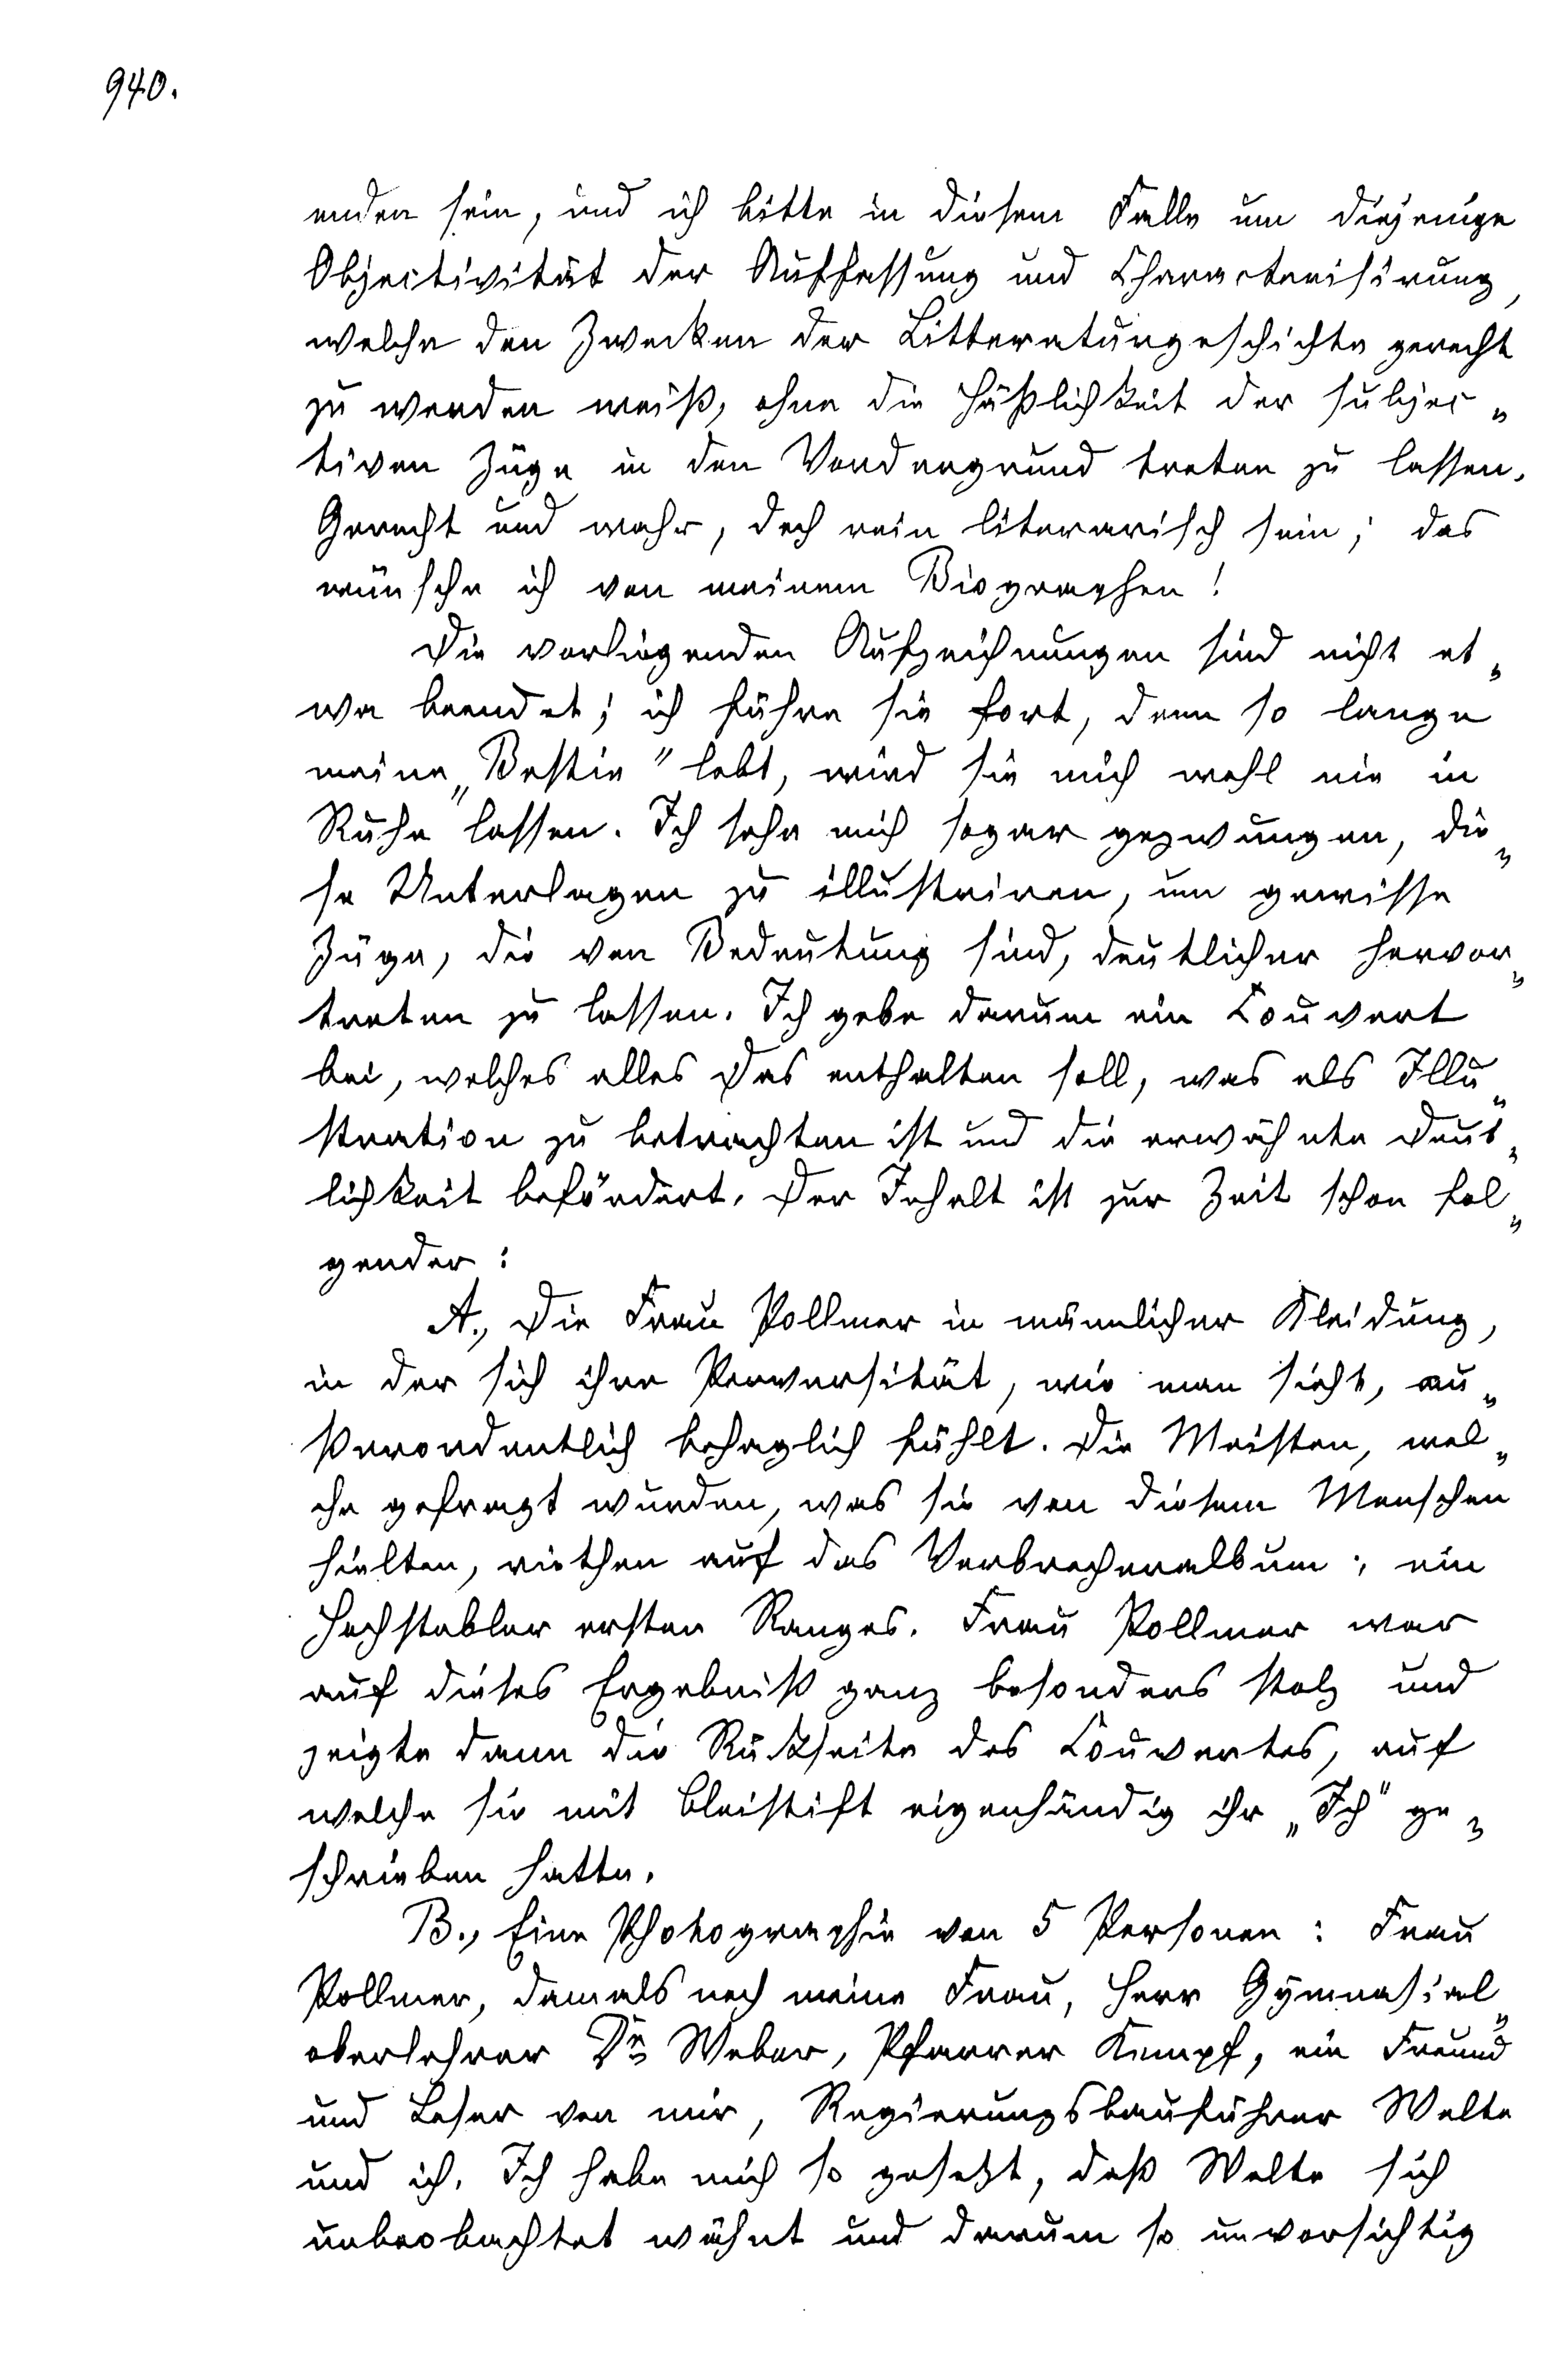 940.
enden sein, und ich bitte in diesem Falle um diejenige
Objectivität der Auffassung und Characterisirung,
welche den Zwecken der Litteraturgeschichte gerecht
zu werden weiß, ohne die Häßlichkeit der subjec„
tiven Züge in den Vordergrund treten zu lassen.
Gerecht und wahr, doch rein literarisch sein; das
wünsche ich von meinem Biographen!
Die vorliegenden Aufzeichnungen sind nicht et„
wa beendet; ich führe sie fort, denn so lange
meine „Bestie" lebt, wird sie mich wohl nie in
Ruhe lassen. Ich sehe mich sogar gezwungen, die„
se Unterlagen zu illustriren, um gewisse
Züge, die von Bedeutung sind, deutlicher hervor„
treten zu lassen. Ich gebe darum ein Couvert
bei, welches alles Das enthalten soll, was als Illu„
stration zu betrachten ist und die erwähnte Deut„
lichkeit befördert. Der Inhalt ist zur Zeit schon fol„
gender:
A., Die Frau Pollmer in männlicher Kleidung,
in der sich ihre Perversität, wie man sieht, au„
ßerordentlich behaglich fühlt. Die Meisten, wel„
che gefragt wurden, was sie von diesem Menschen
hielten, riethen auf das Verbrecheralbum: ein
Hochstabler ersten Ranges. Frau Pollmer war
auf dieses Ergebniß ganz besonders stolz und
zeigte dann die Rückseite des Couvertes, auf
welche sie mit Bleistift eigenhändig ihr „Ich" ge„
schrieben hatte.
B., Eine Photographie von 5 Personen: Frau
Pollmer, damals noch meine Frau, Herr Gymnasial„
oberlehrer Dr. Weber, Pfarrer Kempf, ein Freund
und Leser von mir, Regierungsbauführer Welte
und ich. Ich habe mich so gesetzt, daß Welte sich
unbeobachtet wähnt und darum so unvorsichtig